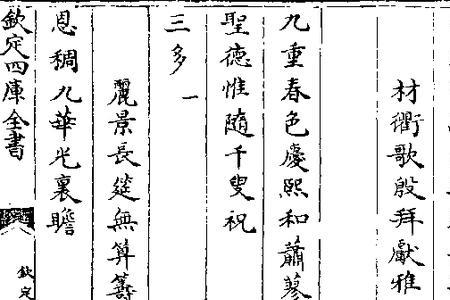 材衢歌殷拜獻雅
九重春色慶熙和蕭蔘
聖德惟隨千叟祝
三多 一
麗景長筵無算籌
恩稠九華光裏瞻
欽定四庫全書
欽定